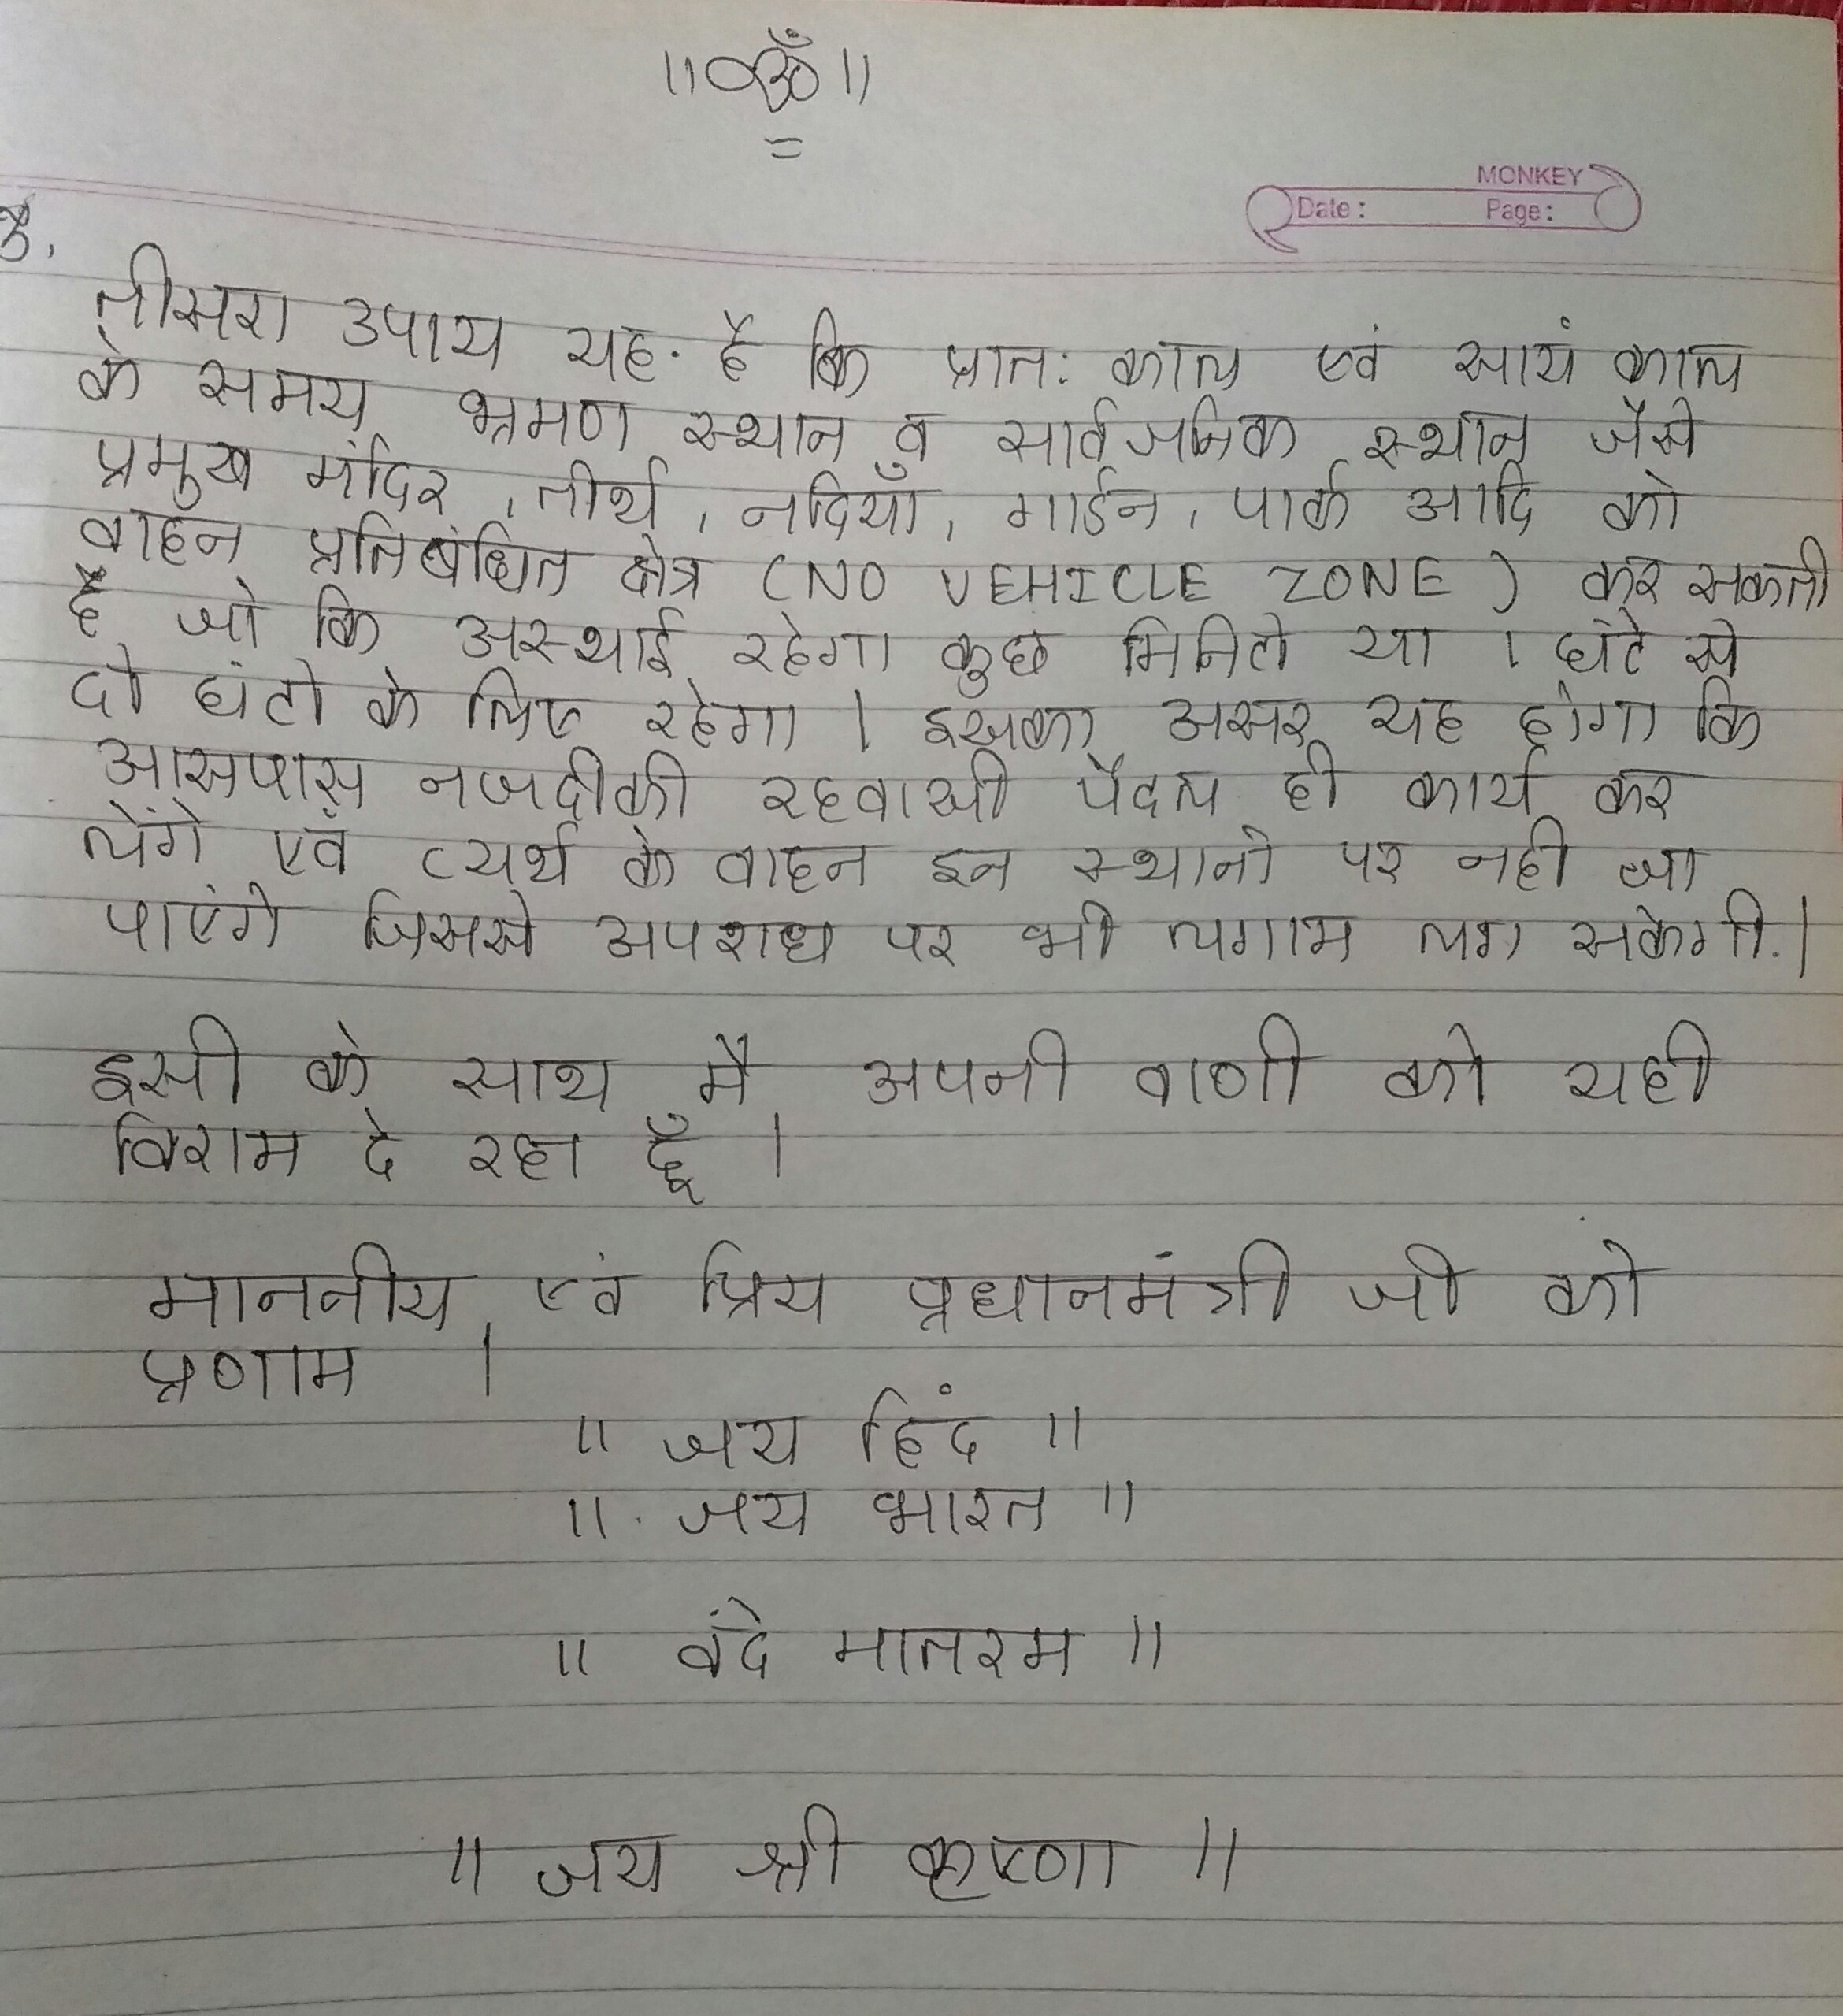 ।। ॐ ।।
MONKEY
Date : Page :
3.
तीसरा उपाय यह है कि प्रातः काल एवं सायं काल
के समय भ्रमण स्थान व सार्वजनिक स्थान जैसे
प्रमुख मंदिर, तीर्थ, नदियाँ, गार्डन, पार्क आदि को
वाहन प्रतिबंधित क्षेत्र (NO VEHICLE ZONE) कर सकती
है जो कि अस्थाई रहेगा कुछ मिनिटो या 1 घंटे से
दो घंटो के लिए रहेगा । इसका असर यह होगा कि
आसपास नजदीकी रहवासी पैदल ही कार्य कर
लेंगे एवं व्यर्थ के वाहन इन स्थानो पर नही जा
पाएंगे जिससे अपराध पर भी लगाम लग सकेगी.।
इसी के साथ मै अपनी वाणी को यही
विराम दे रहा हूँ ।
माननीय एवं प्रिय प्रधानमंत्री जी को
प्रणाम ।
।। जय हिंद ।।
।। जय भारत ।।
।। वंदे मातरम ।।
।। जय श्री कृष्णा ।।